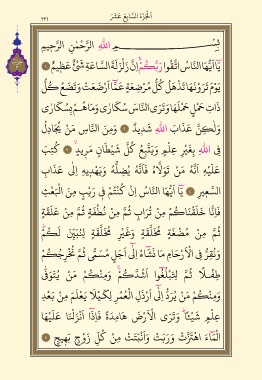 الجزء السابع عشر
٣٣١
بِسْمِ اللَّهِ الرَّحْمَٰنِ الرَّحِيمِ
يَا أَيُّهَا النَّاسُ اتَّقُوا رَبَّكُمْ إِنَّ زَلْزَلَةَ السَّاعَةِ شَيْءٌ عَظِيمٌ
يَوْمَ تَرَوْنَهَا تَذْهَلُ كُلُّ مُرْضِعَةٍ عَمَّا أَرْضَعَتْ وَتَضَعُ كُلُّ
ذَاتِ حَمْلٍ حَمْلَهَا وَتَرَى النَّاسَ سُكَارَى وَمَا هُمْ بِسُكَارَى
وَلَكِنَّ عَذَابَ اللَّهِ شَدِيدٌ وَمِنَ النَّاسِ مَنْ يُجَادِلُ
فِي اللَّهِ بِغَيْرِ عِلْمٍ وَيَتَّبِعُ كُلَّ شَيْطَانٍ مَرِيدٍ كُتِبَ
عَلَيْهِ أَنَّهُ مَنْ تَوَلَّاهُ فَأَنَّهُ يُضِلُّهُ وَيَهْدِيهِ إِلَى عَذَابِ
السَّعِيرِ يَا أَيُّهَا النَّاسُ إِنْ كُنْتُمْ فِي رَيْبٍ مِنَ الْبَعْثِ
فَإِنَّا خَلَقْنَاكُمْ مِنْ تُرَابٍ ثُمَّ مِنْ نُطْفَةٍ ثُمَّ مِنْ عَلَقَةٍ
ثُمَّ مِنْ مُضْغَةٍ مُخَلَّقَةٍ وَغَيْرِ مُخَلَّقَةٍ لِنُبَيِّنَ لَكُمْ
وَنُقِرُّ فِي الْأَرْحَامِ مَا نَشَاءُ إِلَى أَجَلٍ مُسَمًّى ثُمَّ نُخْرِجُكُمْ
طِفْلًا ثُمَّ لِتَبْلُغُوا أَشُدَّكُمْ وَمِنْكُمْ مَنْ يُتَوَفَّى
وَمِنْكُمْ مَنْ يُرَدُّ إِلَى أَرْذَلِ الْعُمُرِ لِكَيْلَا يَعْلَمَ مِنْ بَعْدِ
عِلْمٍ شَيْئًا وَتَرَى الْأَرْضَ هَامِدَةً فَإِذَا أَنْزَلْنَا عَلَيْهَا
الْمَاءَ اهْتَزَّتْ وَرَبَتْ وَأَنْبَتَتْ مِنْ كُلِّ زَوْجٍ بَهِيجٍ